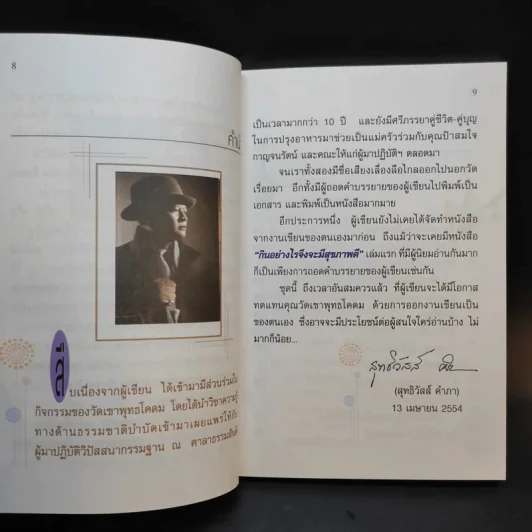 8
คำนำ
สืบเนื่องจากผู้เขียน ได้เข้ามามีส่วนร่วมใน
กิจกรรมของวัดเขาพุทธโคดม โดยได้นำวิชาความรู้
ทางด้านธรรมชาติบำบัดเข้ามาเผยแพร่ให้กับ
ผู้มาปฏิบัติวิปัสสนากรรมฐาน ณ ศาลาธรรม
9
เป็นเวลามากกว่า 10 ปี และยังมีศรีภรรยาคู่ชีวิต-คู่บุญ
ในการปรุงอาหารมาช่วยเป็นแม่ครัวร่วมกับคุณป้าสมใจ
กาญจนรัตน์ และคณะให้แก่ผู้มาปฏิบัติฯ ตลอดมา
จนเราทั้งสองมีชื่อเสียงเลื่องลือไกลออกไปนอกวัด
เรื่อยมา อีกทั้งมีผู้ถอดคำบรรยายของผู้เขียนไปพิมพ์เป็น
เอกสาร และพิมพ์เป็นหนังสือมากมาย
อีกประการหนึ่ง ผู้เขียนยังไม่เคยได้จัดทำหนังสือ
จากงานเขียนของตนเองมาก่อน ถึงแม้ว่าจะเคยมีหนังสือ
"กินอย่างไรจึงจะมีสุขภาพดี" เล่มแรก ที่มีผู้นิยมอ่านกันมาก
ก็เป็นเพียงการถอดคำบรรยายของผู้เขียนเช่นกัน
ชุดนี้ ถึงเวลาอันสมควรแล้ว ที่ผู้เขียนจะได้มีโอกาส
ทดแทนคุณวัดเขาพุทธโคดม ด้วยการออกงานเขียนเป็น
ของตนเอง ซึ่งอาจจะมีประโยชน์ต่อผู้สนใจใคร่อ่านบ้าง ไม่
มากก็น้อย...
สุทธิวัสส์
(สุทธิวัสส์ คำภา)
13 เมษายน 2554